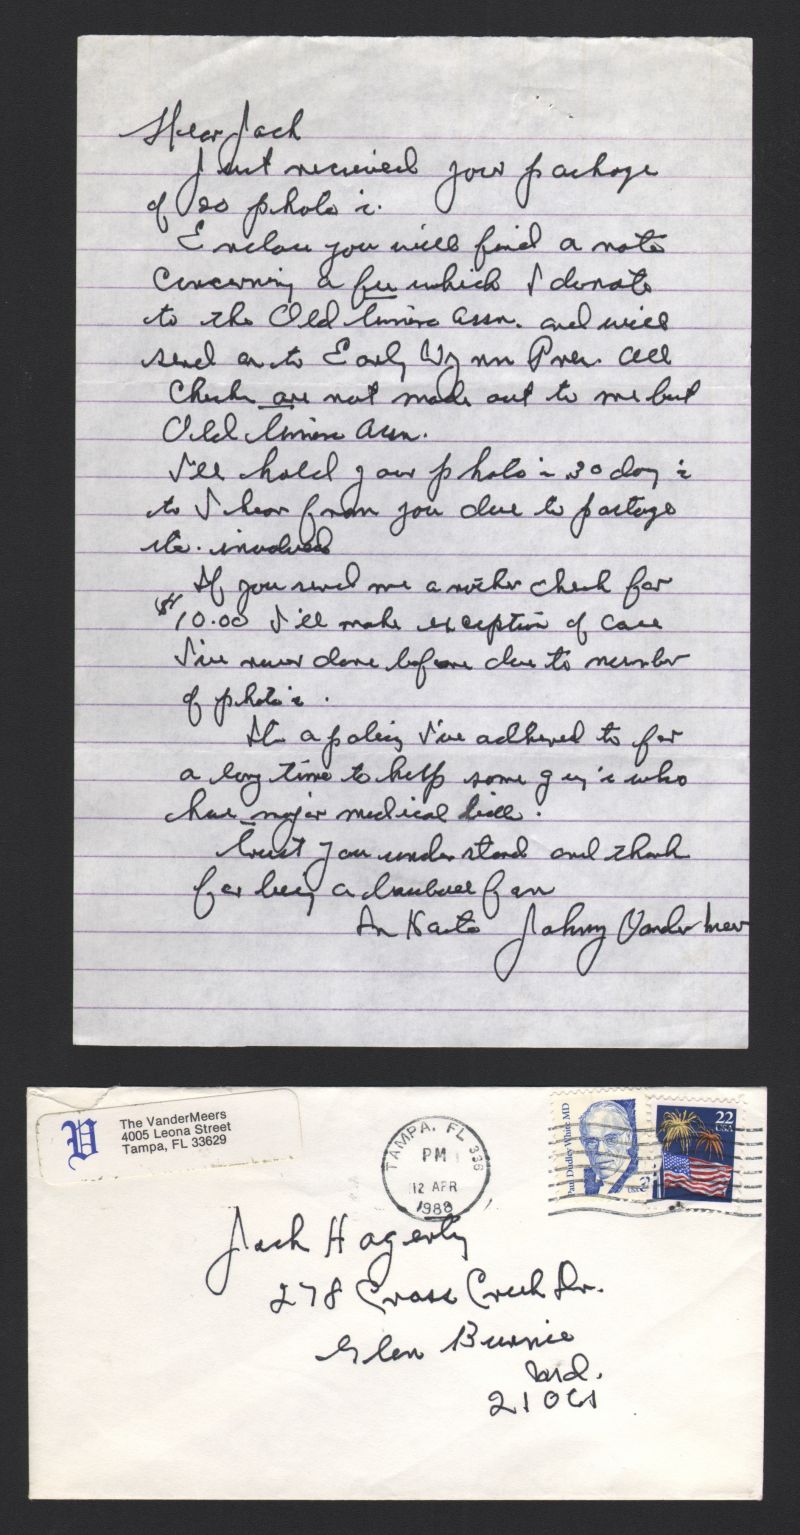 Dear Jack
Just received your package
of 20 photo's.
Enclose you will find a note
concerning a fee which I donate
to the Old Timers Assn. and will
send on to Early Wynn Pres. All
Checks are not made out to me but
Old Timers Assn.
I'll hold your photo's 30 day's
to I hear from you due to postage
etc. involved
If you send me another check for
$10.00 I'll make exception of case
I've never done before due to number
of photo's.
It's a policy I've adhered to for
a long time to help some guy's who
have major medical bills.
Trust you understand and thank
for being a baseball fan
Johnny Vander Meer
V
The VanderMeers
4005 Leona Street
Tampa, FL 33629
TAMPA, FL 336
PM
12 APR
1988
Paul Dudley White MD
USA 3
22
USA
Jack Hagerty
278 Cross Creek Dr.
Glen Burnie
Md.
21061